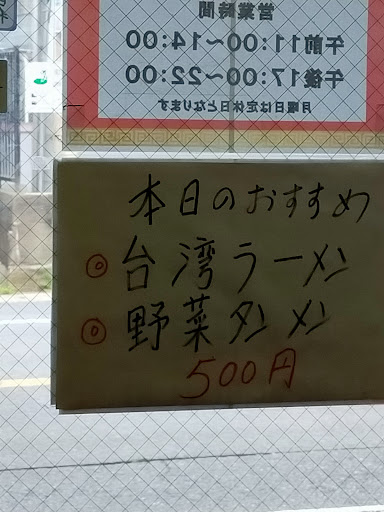 営業時間
午前11:00〜14:00
午後17:00〜22:00
月曜日は定休日となります
本日のおすすめ
◎台湾ラーメン
◎野菜タンメン
500円